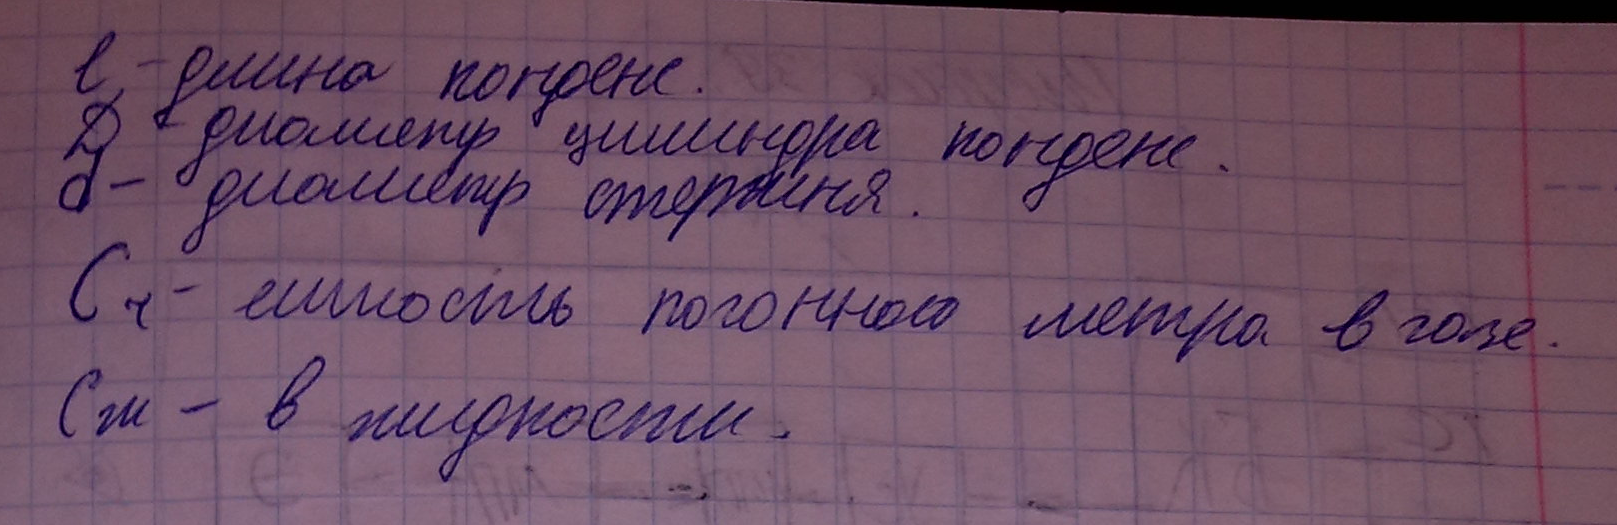 l - длина конденс.
D - диаметр цилиндра конденс.
d - диаметр стержня.
Cг - емкость погонного метра в газе.
Cж - в жидкости.